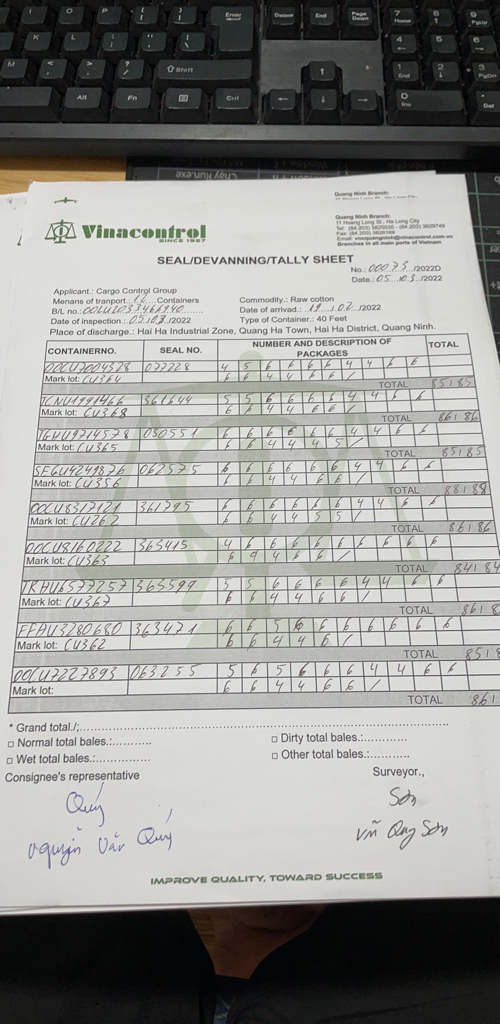 Enter
Delete
End
Page Down
7 Home
8
9 PgUp
4
5
6
1 End
2
3 PgDn
0 Ins
Del
Shift
Alt
Fn
Ctrl
Chạy Run.exe
Quang Ninh Branch:
Vinacontrol
SINCE 1957
Quang Ninh Branch:
11 Hoang Long St., Ha Long City
Tel: (84.203) 3825535 - (84.203) 3829749
Fax: (84.203) 3826169
Email: vncquangninh@vinacontrol.com.vn
Branches in all main ports of Vietnam
SEAL/DEVANNING/TALLY SHEET
No.: 00073 /2022D
Date: 05.03./2022
Applicant.: Cargo Control Group
Menans of tranport.: 12 Containers
Commodity.: Raw cotton
B/L no.:
Date of arrivad.: 19./02./2022
Date of inspection.: 05.03./2022
Type of Container.: 40 Feet
Place of discharge.: Hai Ha Industrial Zone, Quang Ha Town, Hai Ha District, Quang Ninh.
CONTAINERNO. SEAL NO. NUMBER AND DESCRIPTION OF PACKAGES TOTAL
OOLU7004328 077228 4 5 6 6 6 6 4 4 6 6
Mark lot: CU364 6 6 4 4 6 6 /
TOTAL 85185
TCNU1991466 361644 5 5 6 6 6 6 4 4 6 6
Mark lot: CU368 6 6 4 4 6 6 /
TOTAL 86186
TGHU9714578 030551 6 6 6 6 6 4 4 6 6
Mark lot: CU365 6 6 4 4 4 5 /
TOTAL 85185
SEGU4249876 062575 6 6 6 6 6 6 4 4 6 6
Mark lot: CU356 6 6 4 4 6 6 /
TOTAL 88188
OOCU8317121 361795 6 6 6 6 6 6 4 4 6 6
Mark lot: CU262 6 6 4 4 5 5 /
TOTAL 86186
OOCU8160222 363415 4 6 6 6 6 6 6 6 6 6
Mark lot: CU363 6 9 4 6 6 /
TOTAL 84184
TRHU6577257 365599 5 5 6 6 6 6 4 4 6 6
Mark lot: CU367 6 6 4 4 6 6 /
TOTAL 8618
FFAU3280680 363471 6 6 5 6 6 6 6 6 6 6
Mark lot: CU362 6 6 4 4 6 /
TOTAL 8518
OOCU7227893 063255 5 6 5 6 6 6 4 4 6 6
Mark lot: 6 6 4 4 6 6 /
TOTAL 861
* Grand total./;
□ Normal total bales.: □ Dirty total bales.:
□ Wet total bales.: □ Other total bales.:
Consignee's representative Surveyor.,
Quý
Sơn
Nguyễn Văn Quý
Vũ Quý Sơn
IMPROVE QUALITY, TOWARD SUCCESS